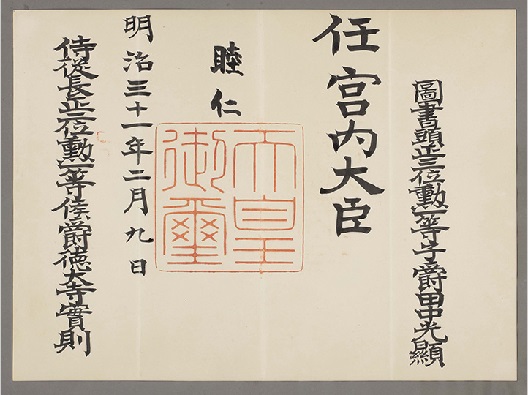 圖書頭正三位勳一等子爵田中光顯
任宮内大臣
睦仁
天皇御璽
明治三十一年二月九日
侍從長正二位勳一等侯爵德大寺實則